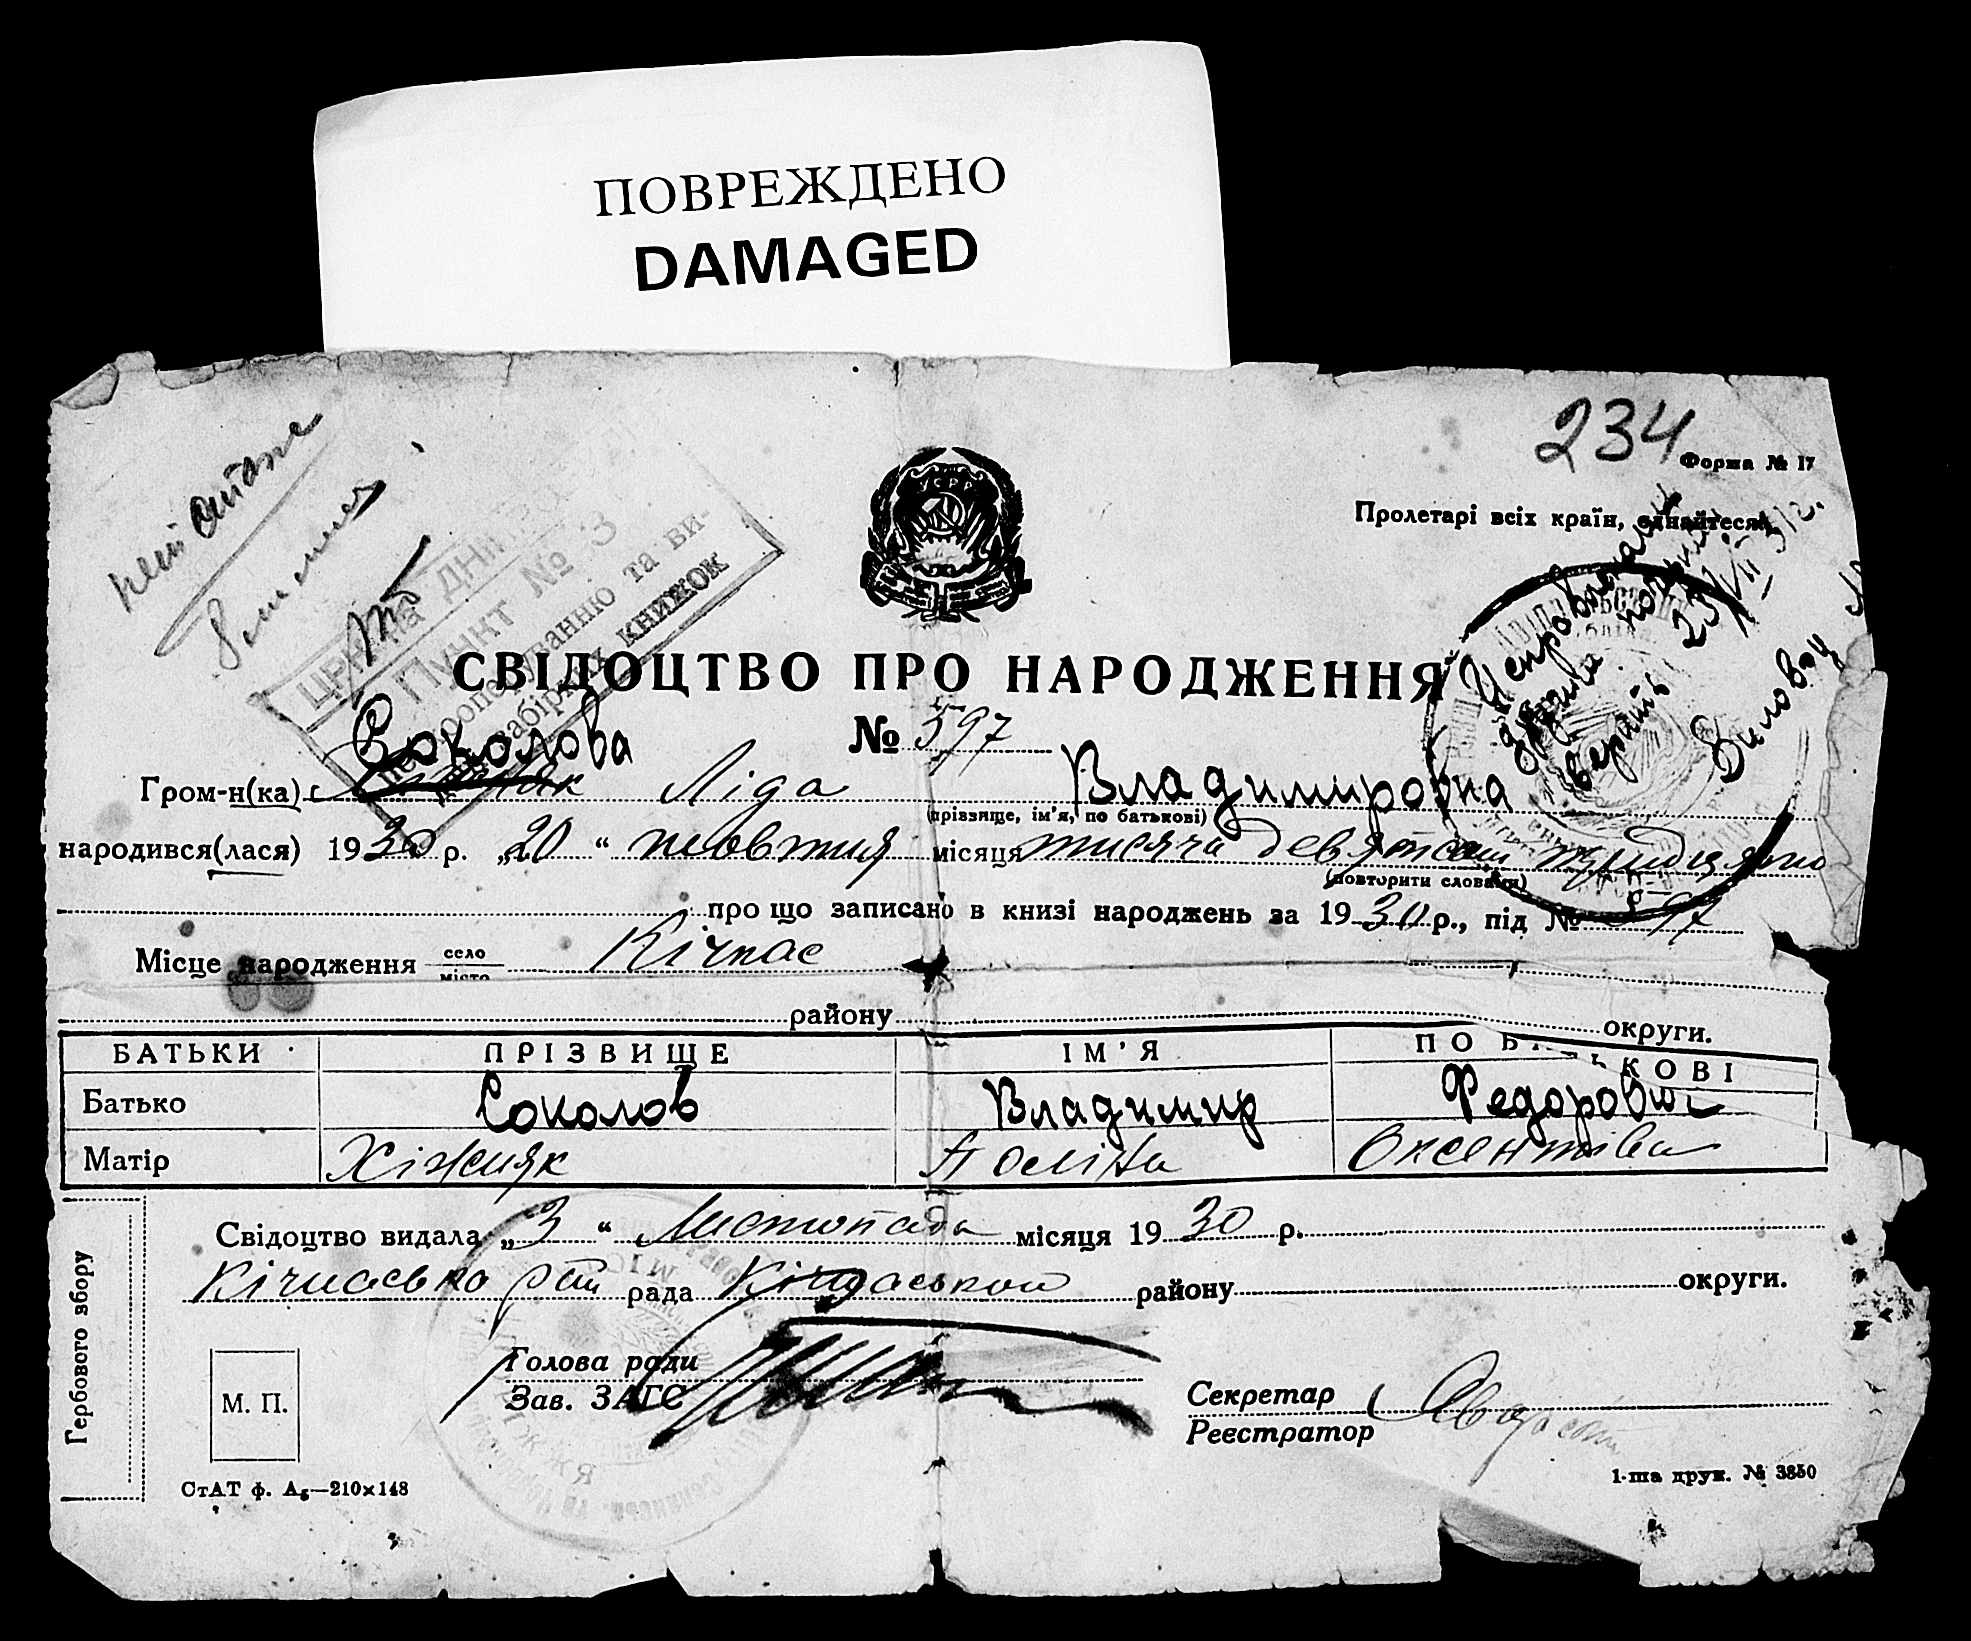 ПОВРЕЖДЕНО
DAMAGED
234
Форма № 17
Пролетарі всіх країн, єднайтеся!
УСРР
ПУНКТ № 3
та ви-
забірних книжок
Исправленому
верить
23/VII 31 г.
СВІДОЦТВО ПРО НАРОДЖЕННЯ
№ 597
Соколова
Гром-н(ка) Ліда Владимировна
(прізвище, ім'я, по батькові)
народився(лася) 1930 р. „20“ жовтня місяця тисяча девятсот тридцято
(повторити словами)
про що записано в книзі народжень за 1930 р., під № 597
Місце народження село Кічкас
місто
району округи.
БАТЬКИ ПРІЗВИЩЕ ІМ'Я ПО БАТЬКОВІ
Батько Соколов Владимир Федорович
Матір Хіжняк Поліна Оксентіва
Свідоцтво видала „3“ Листопада місяця 1930 р.
Кічкасько рада Кічкаської району округи.
Гербового збору
М. П.
Голова ради
Зав. ЗАГС
Секретар
Реєстратор
СтАТ ф. А₅—210×148
1-ша друк. № 3850